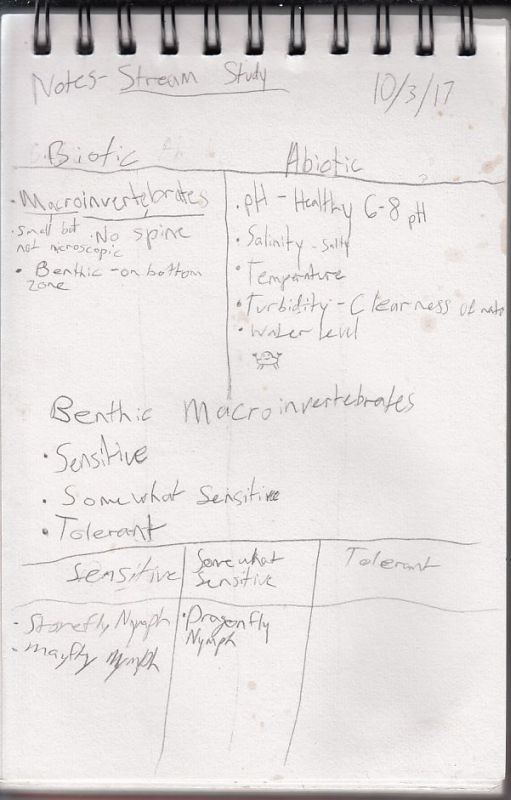 Notes- Stream Study
10/3/17
Biotic
Abiotic
• Macroinvertebrates
• small but
not microscopic
• No spine
• Benthic - on bottom
zone
• pH - Healthy 6-8 pH
• Salinity - salty
• Temperature
• Turbidity - Clearness of
• Water level
Benthic Macroinvertebrates
• Sensitive
• Somewhat Sensitive
• Tolerant
Sensitive
Somewhat
Sensitive
Tolerant
• Stonefly Nymph
• Mayfly Nymph
• Dragonfly
Nymph